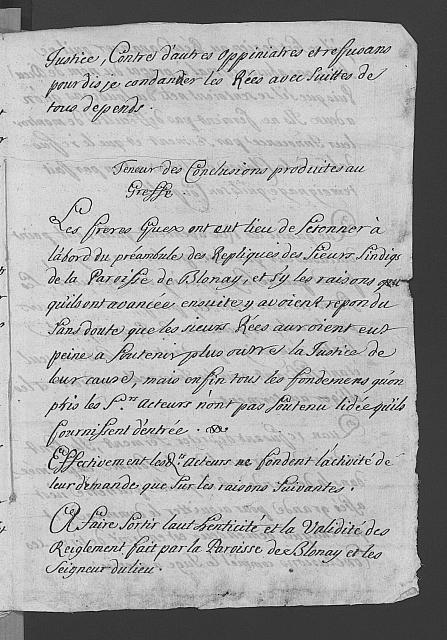 Justice, Contre d'autres oppiniatres et refusans
pour dis je condander les Rées avec Suittes de
tous depends.
Teneur des Conclusions produites au
Greffe.
Les freres Guex ont eut lieu de S'etonner à
l'abord du préambule des Repliques des Sieurs Sindiqs
de la Paroisse de Blonay, et sy les raisons
qu'ils ont avancée ensuite y avoient repondu
Sans doute que les sieurs Rées auroient eut
peine à Soutenir plus outre la Justice de
leur cause, mais enfin tous les fondemens qu'on
pris les Srs Acteurs n'ont pas Soutenu lidée qu'ils
fournissent d'entrée.
Effectivement les Acteurs ne fondent l'activité de
leur demande que Sur les raisons Suivantes
A faire Sortir l'authenticité et la Validité des
Reiglement fait par la Paroisse de Blonay et les
Seigneur du lieu.